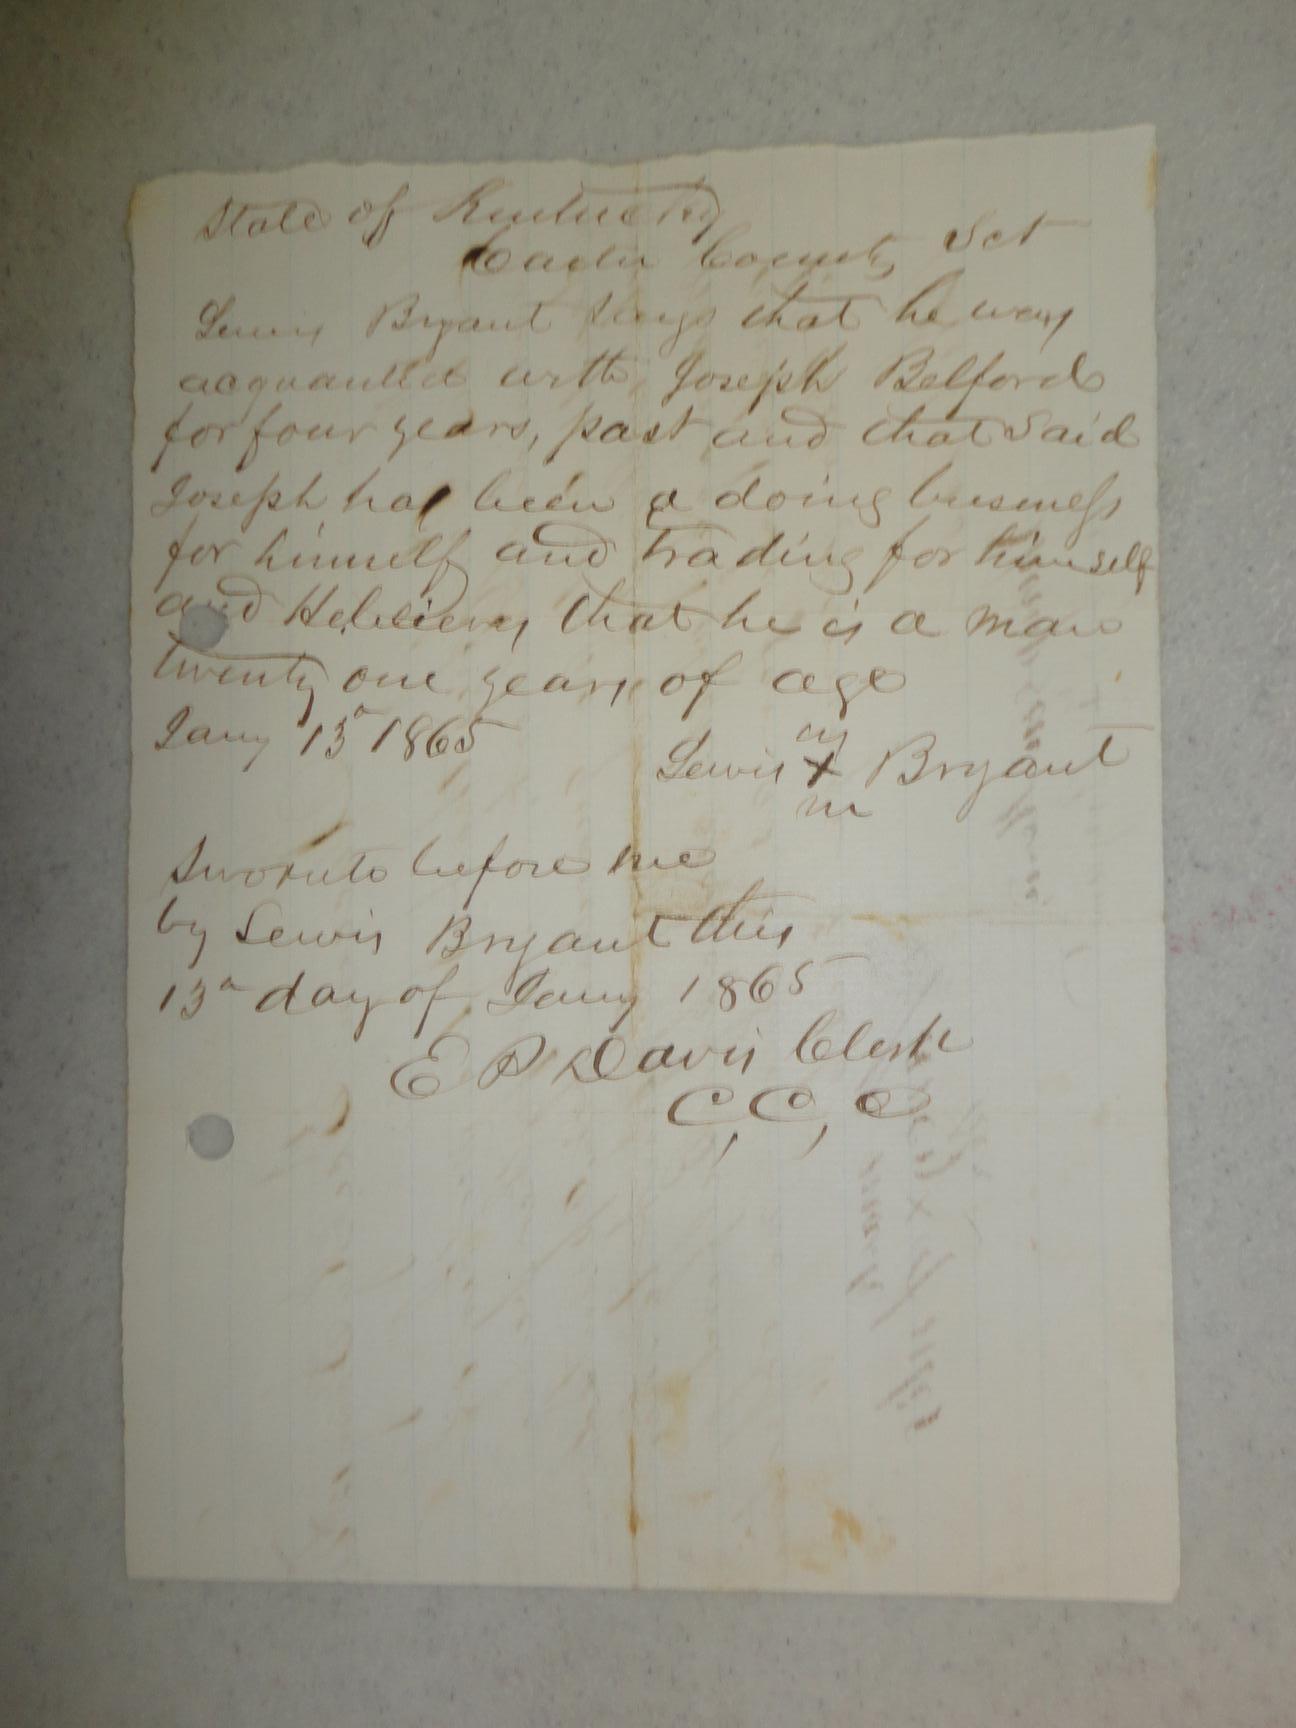 State of Kentucky
Carter County Sct
Lewis Bryant Says that he was
acquanted with Joseph Belford
for four years, past and that Said
Joseph has been a doing business
for himself and trading for himself
and He believes that he is a man
twenty one years of age
Jany 13th 1865
his
Lewis X Bryant
m
Sworn to before me
by Lewis Bryant this
13th day of Jany 1865
E P Davis Clerk
C, C, C